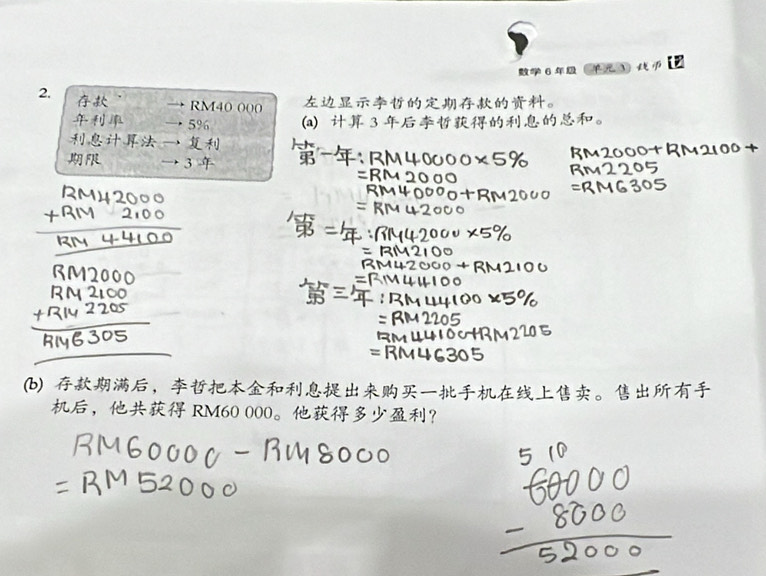 数学 6 年级 单元 3 钱币
2.
存款 → RM40 000
年利率 → 5%
利息计算法 → 复利
期限 → 3 年
左边显示李哲的定期存款的资料。
(a) 计算 3 年后李哲获得的利息的总和。
第一年:RM40000×5%
=RM2000
RM40000+RM2000
=RM42000
第二年:RM42000×5%
=RM2100
RM42000+RM2100
=RM44100
第三年:RM44100×5%
=RM2205
RM44100+RM2205
=RM46305
RM2000+RM2100+
RM2205
=RM6305
RM42000
+RM 2100
RM 44100
RM2000
RM2100
+RM 2205
RM6305
(b) 存款期满后，李哲把本金和利息提出来购买一批手机在线上售卖。售出所有手
机后，他共获得 RM60 000。他获得多少盈利？
RM60000-RM8000
=RM52000
5 10
60000
- 8000
52000